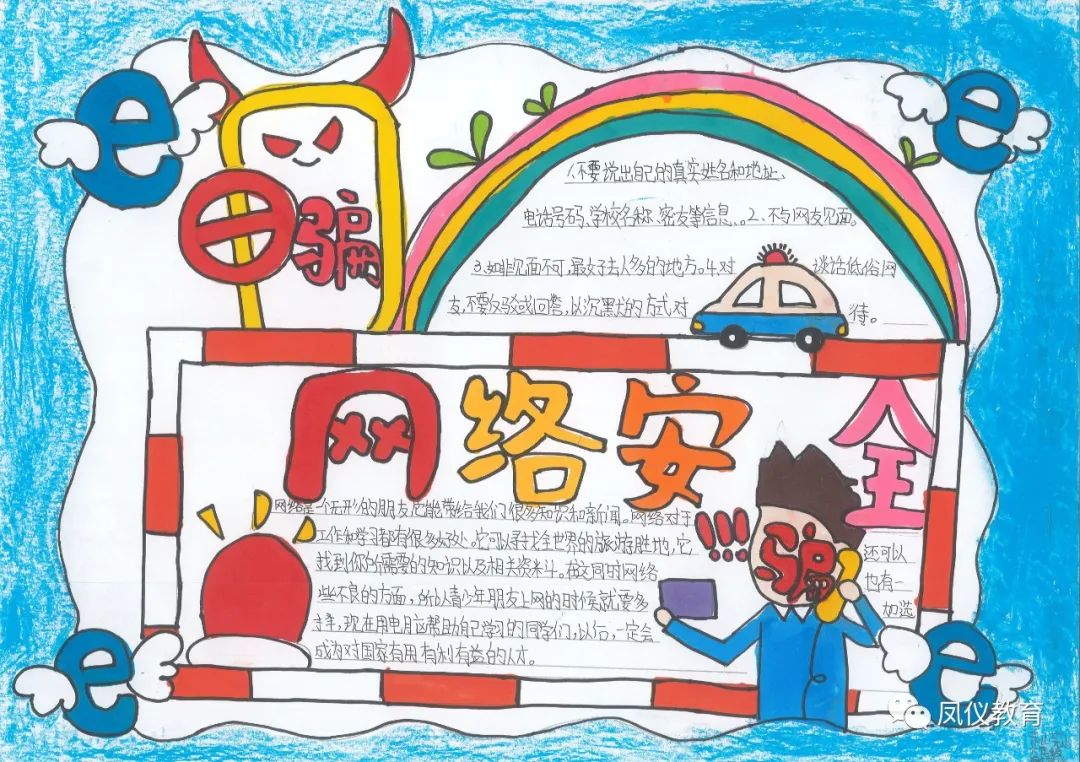 骗
1、不要说出自己的真实姓名和地址、
电话号码、学校名称、密友等信息、。2、不与网友见面。
3、如非见面不可,最好去人多的地方。4.对 谈话低俗网
友,不要反驳或回答,以沉默的方式对 待。
网络安全
网络是一个无形的朋友,它能带给我们很多知识和新闻。网络对于
工作和学习都有很多好处。它可以寻找全世界的旅游胜地,它 还可以
找到你所需要的知识以及相关资料。在文同时网络 也有一
些不良的方面,所以青少年朋友上网的时候就要多 加选
择,现在用电脑帮助自己学习的同学们,以后,一定会
成为对国家有用有利有益的人才。
!!!
骗
e
e
e
e
凤仪教育